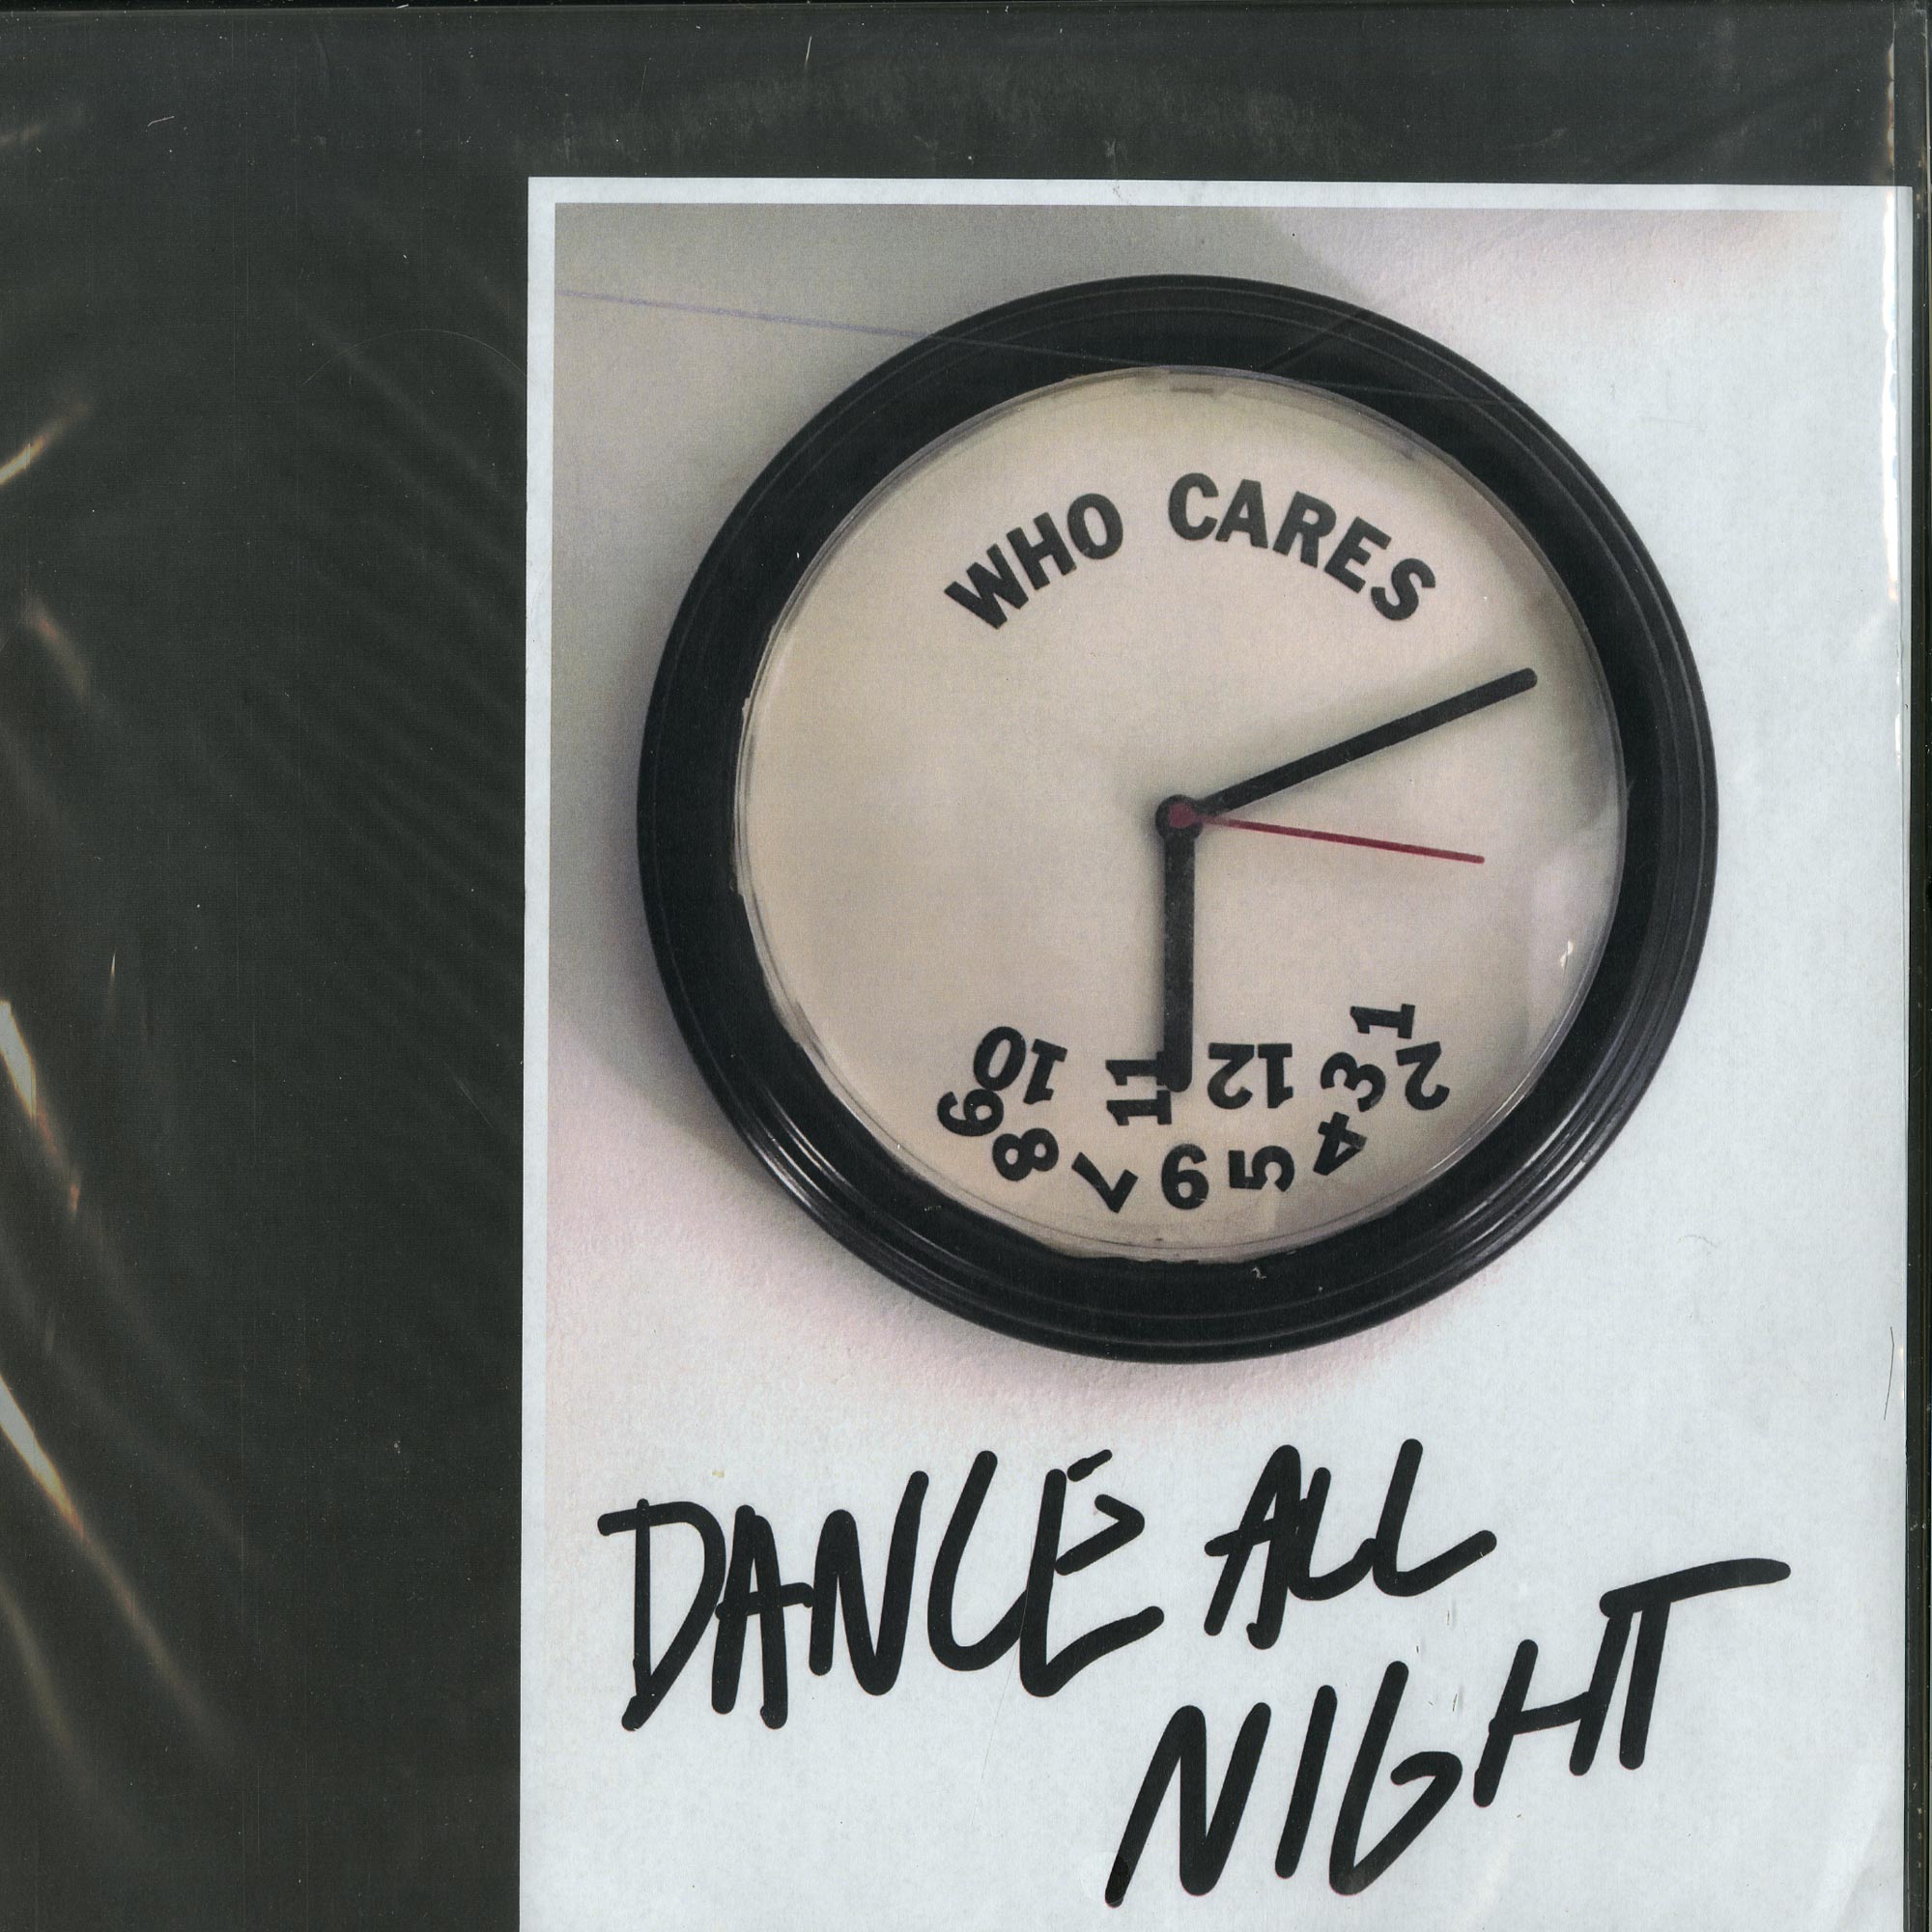 WHO CARES
10 11 12 3 1
9 8 7 6 5 4 2
DANCE ALL
NIGHT